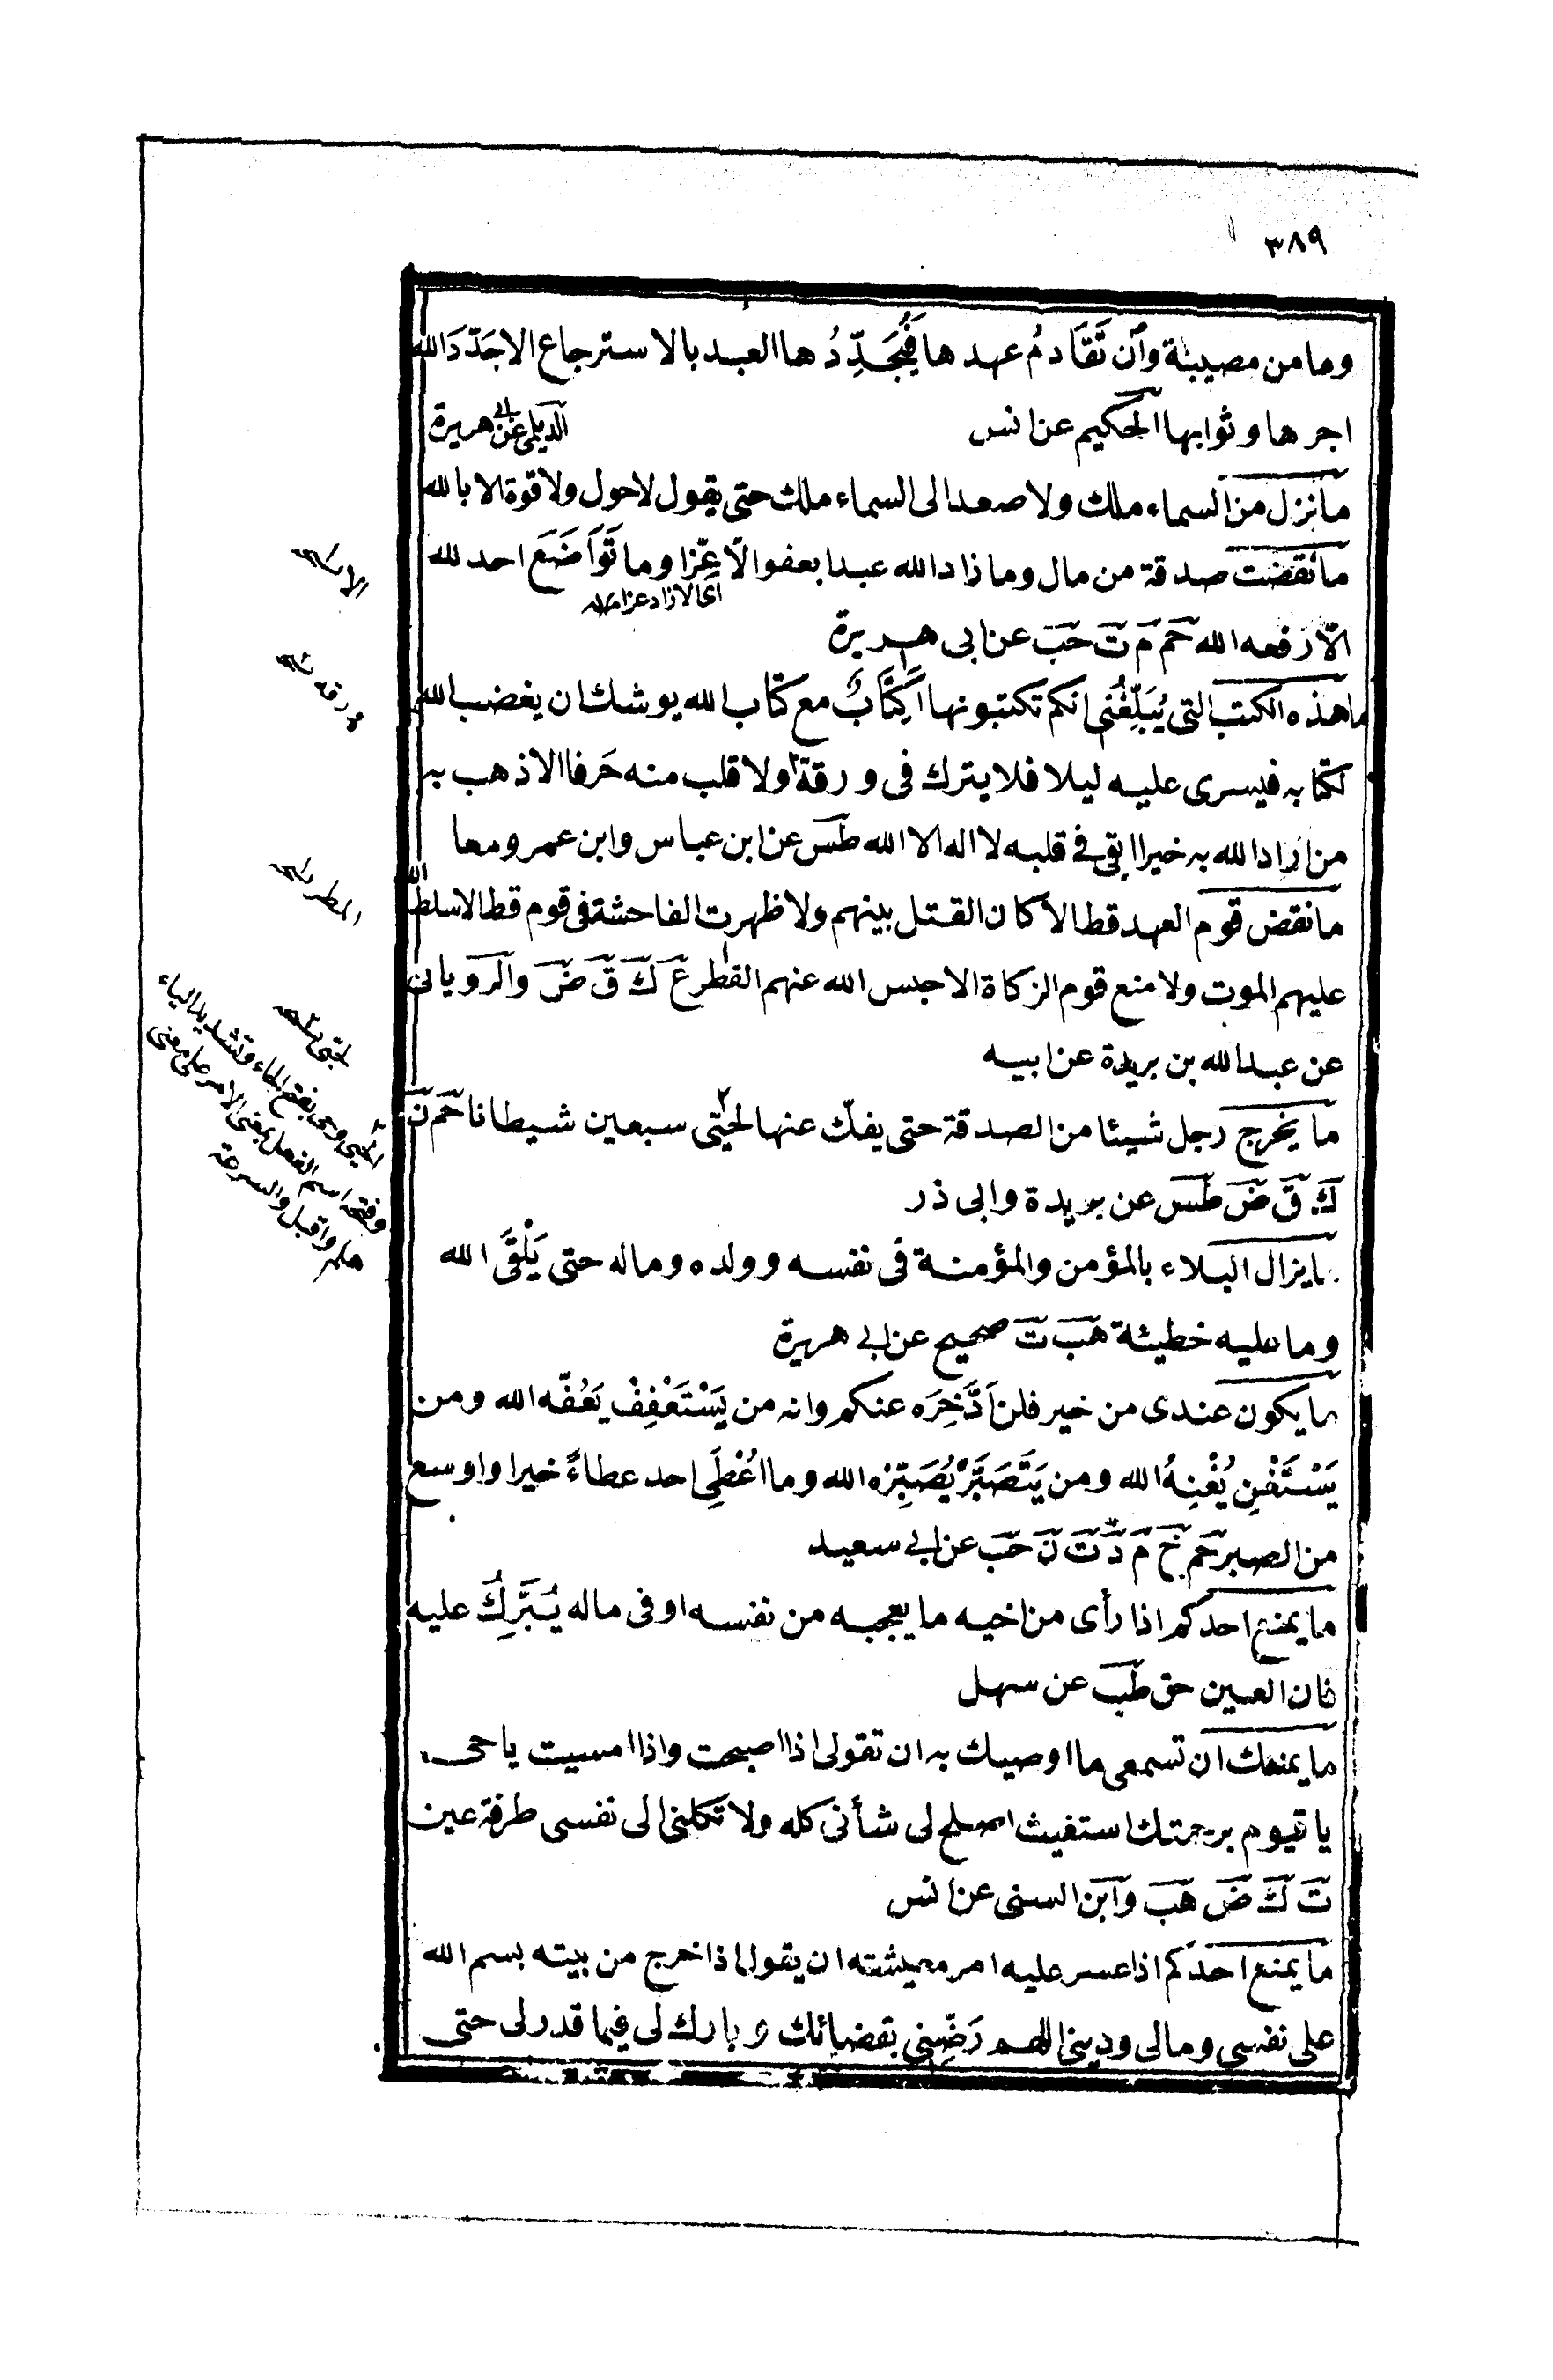 ٣٨٩
وما من مصيبة وان تَقَادمُ عهدها فَيُجَدِّدُها العبد بالاسترجاع الا جَدّدَ الله
اجرها وثوابها الحكيم عن انس الديلمى عن ابى هريرة
ما نزل من السماء ملك ولا صعد الى السماء ملك حتى يقول لا حول ولا قوة الا بالله
ما نقضت صدقة من مال وما زاد الله عبدا بعفو الا عِّزا وما تَوَاضَعَ احد لله
اى الا زاد عزا
الّا رفعه الله حم م ت حب عن ابى هريرة
ما هذه الكتب التى يُبَلِّغُنى انكم تكتبونها اَكِتَابٌ مع كتاب الله يوشك ان يغضب الله
لكتابه فيسرى عليه ليلا فلا يترك فى ورقة ولا قلب منه حَرفا الا ذهب به
من اراد الله به خيرا ابقى فى قلبه لا اله الا الله طس عن ابن عباس وابن عمر ومعا
ما نقض قوم العهد قط الا كان القتل بينهم ولا ظهرت الفاحشة فى قوم قط الا سلط الله
عليهم الموت ولا منع قوم الزكاة الا حبس الله عنهم القطر ع ك ق ض والرويانى
عن عبد الله بن بريدة عن ابيه
ما يخرج رجل شيئا من الصدقة حتى يفك عنها لحيَى سبعين شيطانا حم ن
ك ق ض طس عن بريدة وابى ذر
ما يزال البلاء بالمؤمن والمؤمنة فى نفسه وولده وماله حتى يَلْقَى الله
وما عليه خطيئة هب ت صحيح عن ابى هريرة
ما يكون عندى من خير فلن اَدَّخِرَه عنكم وانه من يَسْتَعْفِفْ يَعُفّه الله ومن
يَسْتَغْنِ يُغْنِهُ الله ومن يَتَصَبَّرْ يُصَبِّرْه الله وما اُعْطِىَ احد عطاءً خيرا واوسع
من الصبر حم خ م د ت ن حب عن ابى سعيد
ما يمنع احدكم اذا رأى من اخيه ما يعجبه من نفسه او فى ماله يُبَّرِكُ عليه
فان العين حق طب عن سهل
ما يمنعك ان تسمعى ما اوصيك به ان تقولى اذا اصبحت واذا امسيت يا حى
يا قيوم برحمتك استغيث اصلح لى شأنى كله ولا تكلنى الى نفسى طرفة عين
ت ك ض هب وابن السنى عن انس
ما يمنع احدكم اذا عسر عليه امر معيشته ان يقول اذا خرج من بيته بسم الله
على نفسى ومالى ودينى اللهم رَضِّنِي بقضائك وبارك لى فيما قدر لى حتى
ورقه
المطر
وفتحه اسم الفعل بمعنى الامر على معنى
هلم واقبل والسرعة